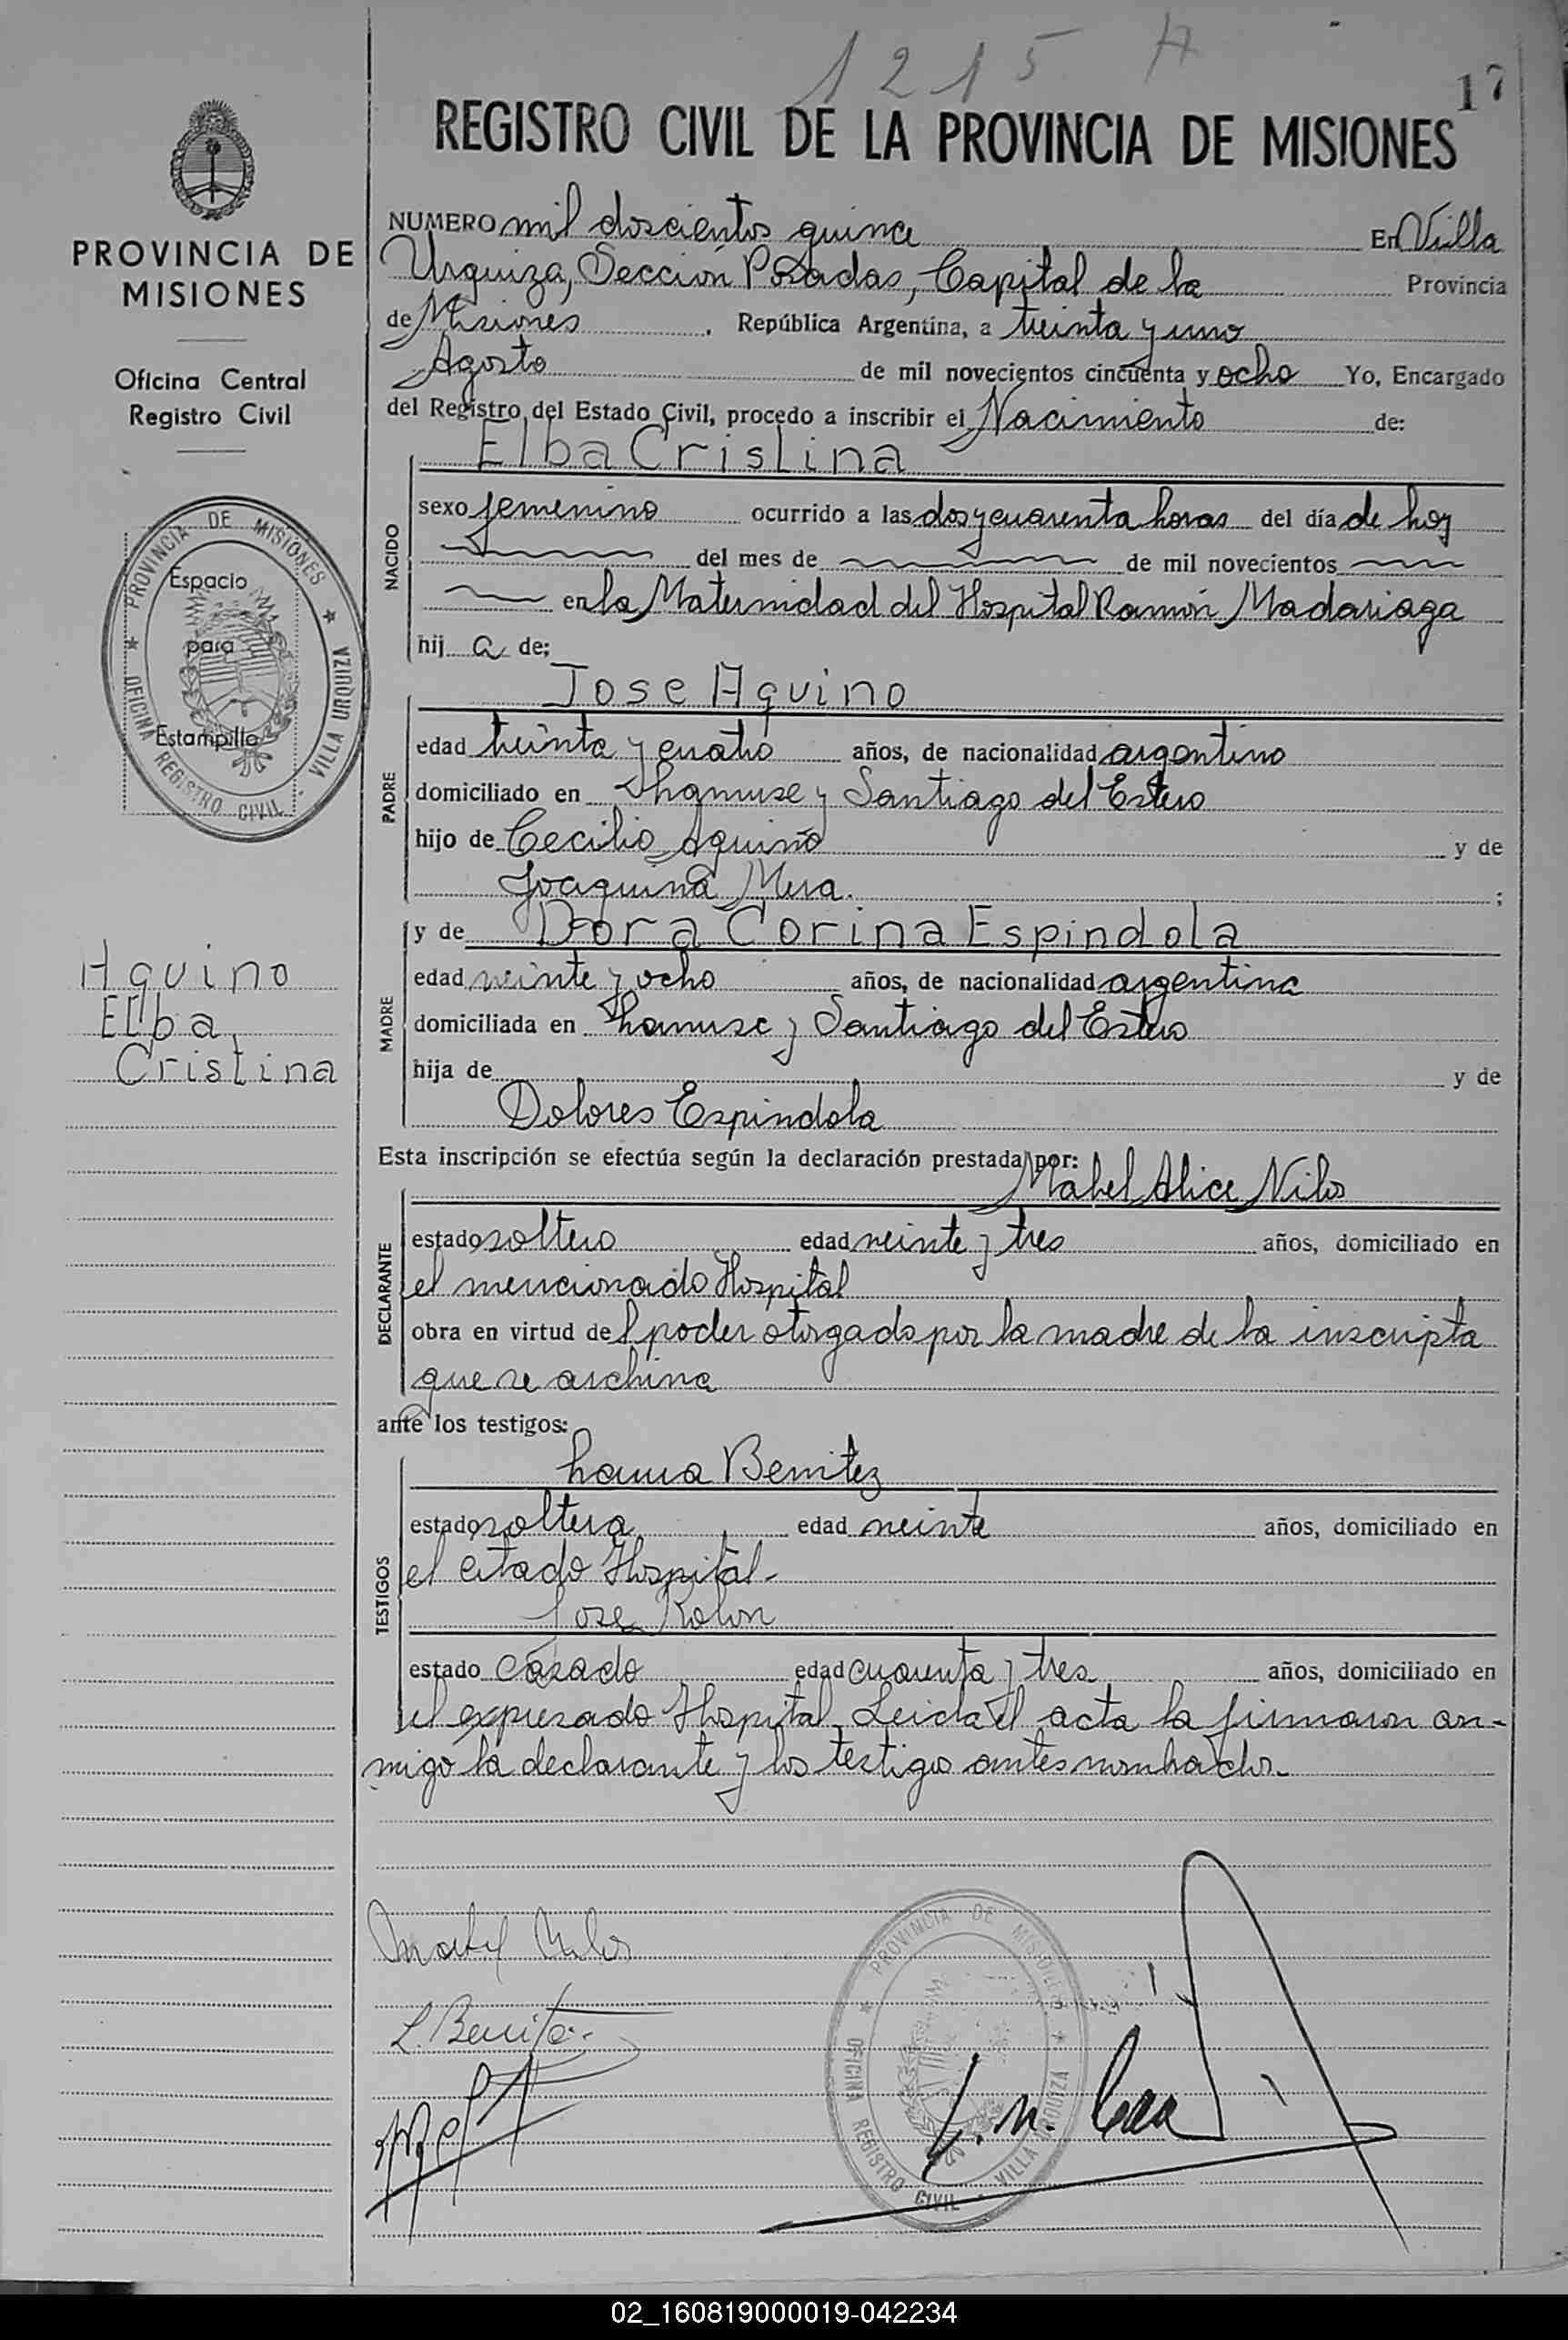 1215 A
17
REGISTRO CIVIL DE LA PROVINCIA DE MISIONES
PROVINCIA DE
MISIONES
Oficina Central
Registro Civil
PROVINCIA DE MISIONES
Espacio
para
Estampilla
OFICINA REGISTRO CIVIL - VILLA URQUIZA
Aquino
Elba
Cristina
NUMERO mil doscientos quince En Villa
Urquiza, Sección Posadas, Capital de la Provincia
de Misiones, República Argentina, a treinta y uno
Agosto de mil novecientos cincuenta y ocho Yo, Encargado
del Registro del Estado Civil, procedo a inscribir el Nacimiento de:
NACIDO
Elba Cristina
sexo femenino ocurrido a las dos y cuarenta horas del día de hoy
del mes de de mil novecientos
en la Maternidad del Hospital Ramón Madariaga
hij a de;
PADRE
Jose Aquino
edad treinta y cuatro años, de nacionalidad argentino
domiciliado en y Santiago del Estero
hijo de Cecilio Aquino y de
Joaquina Mesa. ;
MADRE
y de Dora Corina Espindola
edad veinte y ocho años, de nacionalidad argentina
domiciliada en y Santiago del Estero
hija de y de
Dolores Espindola
Esta inscripción se efectúa según la declaración prestada por:
DECLARANTE
Mabel Alice
estado soltero edad veinte y tres años, domiciliado en
el mencionado Hospital
obra en virtud del poder otorgado por la madre de la inscripta
que se archiva
ante los testigos:
TESTIGOS
Laura Benitez
estado soltera edad veinte años, domiciliado en
el citado Hospital-
Jose Rolon
estado casado edad cuarenta y tres años, domiciliado en
el expresado Hospital. Leida el acta la firmaron con-
migo la declarante y los testigos antes nombrados-
Mabel
L. Benitez
PROVINCIA DE MISIONES
OFICINA REGISTRO CIVIL - VILLA URQUIZA
02_160819000019-042234